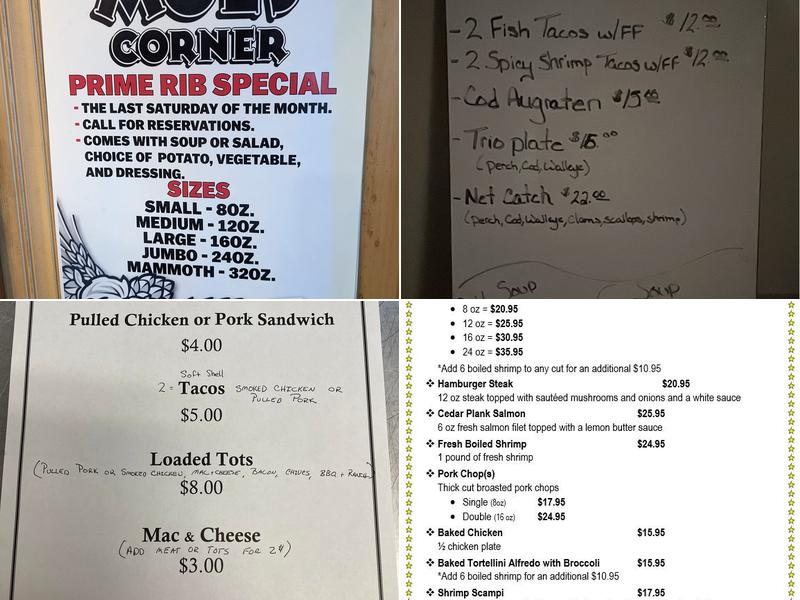 CORNER
PRIME RIB SPECIAL
- THE LAST SATURDAY OF THE MONTH.
- CALL FOR RESERVATIONS.
- COMES WITH SOUP OR SALAD,
CHOICE OF POTATO, VEGETABLE,
AND DRESSING.
SIZES
SMALL - 8OZ.
MEDIUM - 12OZ.
LARGE - 16OZ.
JUMBO - 24OZ.
MAMMOTH - 32OZ.
- 2 Fish Tacos w/FF $12.00
- 2 Spicy Shrimp Tacos w/FF $12.00
- Cod Augraten $15.00
- Trio plate $15.00
(perch, Cod, Walleye)
- Net Catch $22.00
(perch, Cod, Walleye, Clams, scallops, shrimp)
Soup Soup
Pulled Chicken or Pork Sandwich
$4.00
Soft Shell
2 = Tacos SMOKED CHICKEN OR
PULLED PORK
$5.00
Loaded Tots
(PULLED PORK OR SMOKED CHICKEN, MAC+CHEESE, BACON, CHIVES, BBQ + RANCH)
$8.00
Mac & Cheese
(ADD MEAT OR TOTS FOR 2$)
$3.00
• 8 oz = $20.95
• 12 oz = $25.95
• 16 oz = $30.95
• 24 oz = $35.95
*Add 6 boiled shrimp to any cut for an additional $10.95
❖ Hamburger Steak $20.95
12 oz steak topped with sautéed mushrooms and onions and a white sauce
❖ Cedar Plank Salmon $25.95
6 oz fresh salmon filet topped with a lemon butter sauce
❖ Fresh Boiled Shrimp $24.95
1 pound of fresh shrimp
❖ Pork Chop(s)
Thick cut broasted pork chops
• Single (8oz) $17.95
• Double (16 oz) $24.95
❖ Baked Chicken $15.95
½ chicken plate
❖ Baked Tortellini Alfredo with Broccoli $15.95
*Add 6 boiled shrimp for an additional $10.95
❖ Shrimp Scampi $17.95